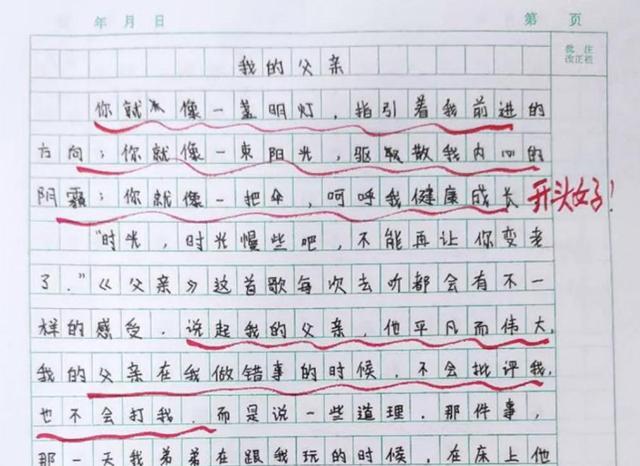 年 月 日 第 页
批注
改正栏
我的父亲
你就像一盏明灯，指引着我前进的
方向；你就像一束阳光，驱散我内心的
阴霾；你就像一把伞，呵呼我健康成长
开头好！
"时光，时光慢些吧，不能再让你变老
了."《父亲》这首歌每次去听都会有不一
样的感受.说起我的父亲，他平凡而伟大.
我的父亲在我做错事的时候，不会批评我，
也不会打我，而是说一些道理.那件事，
那一天我弟弟在跟我玩的时候，在床上他